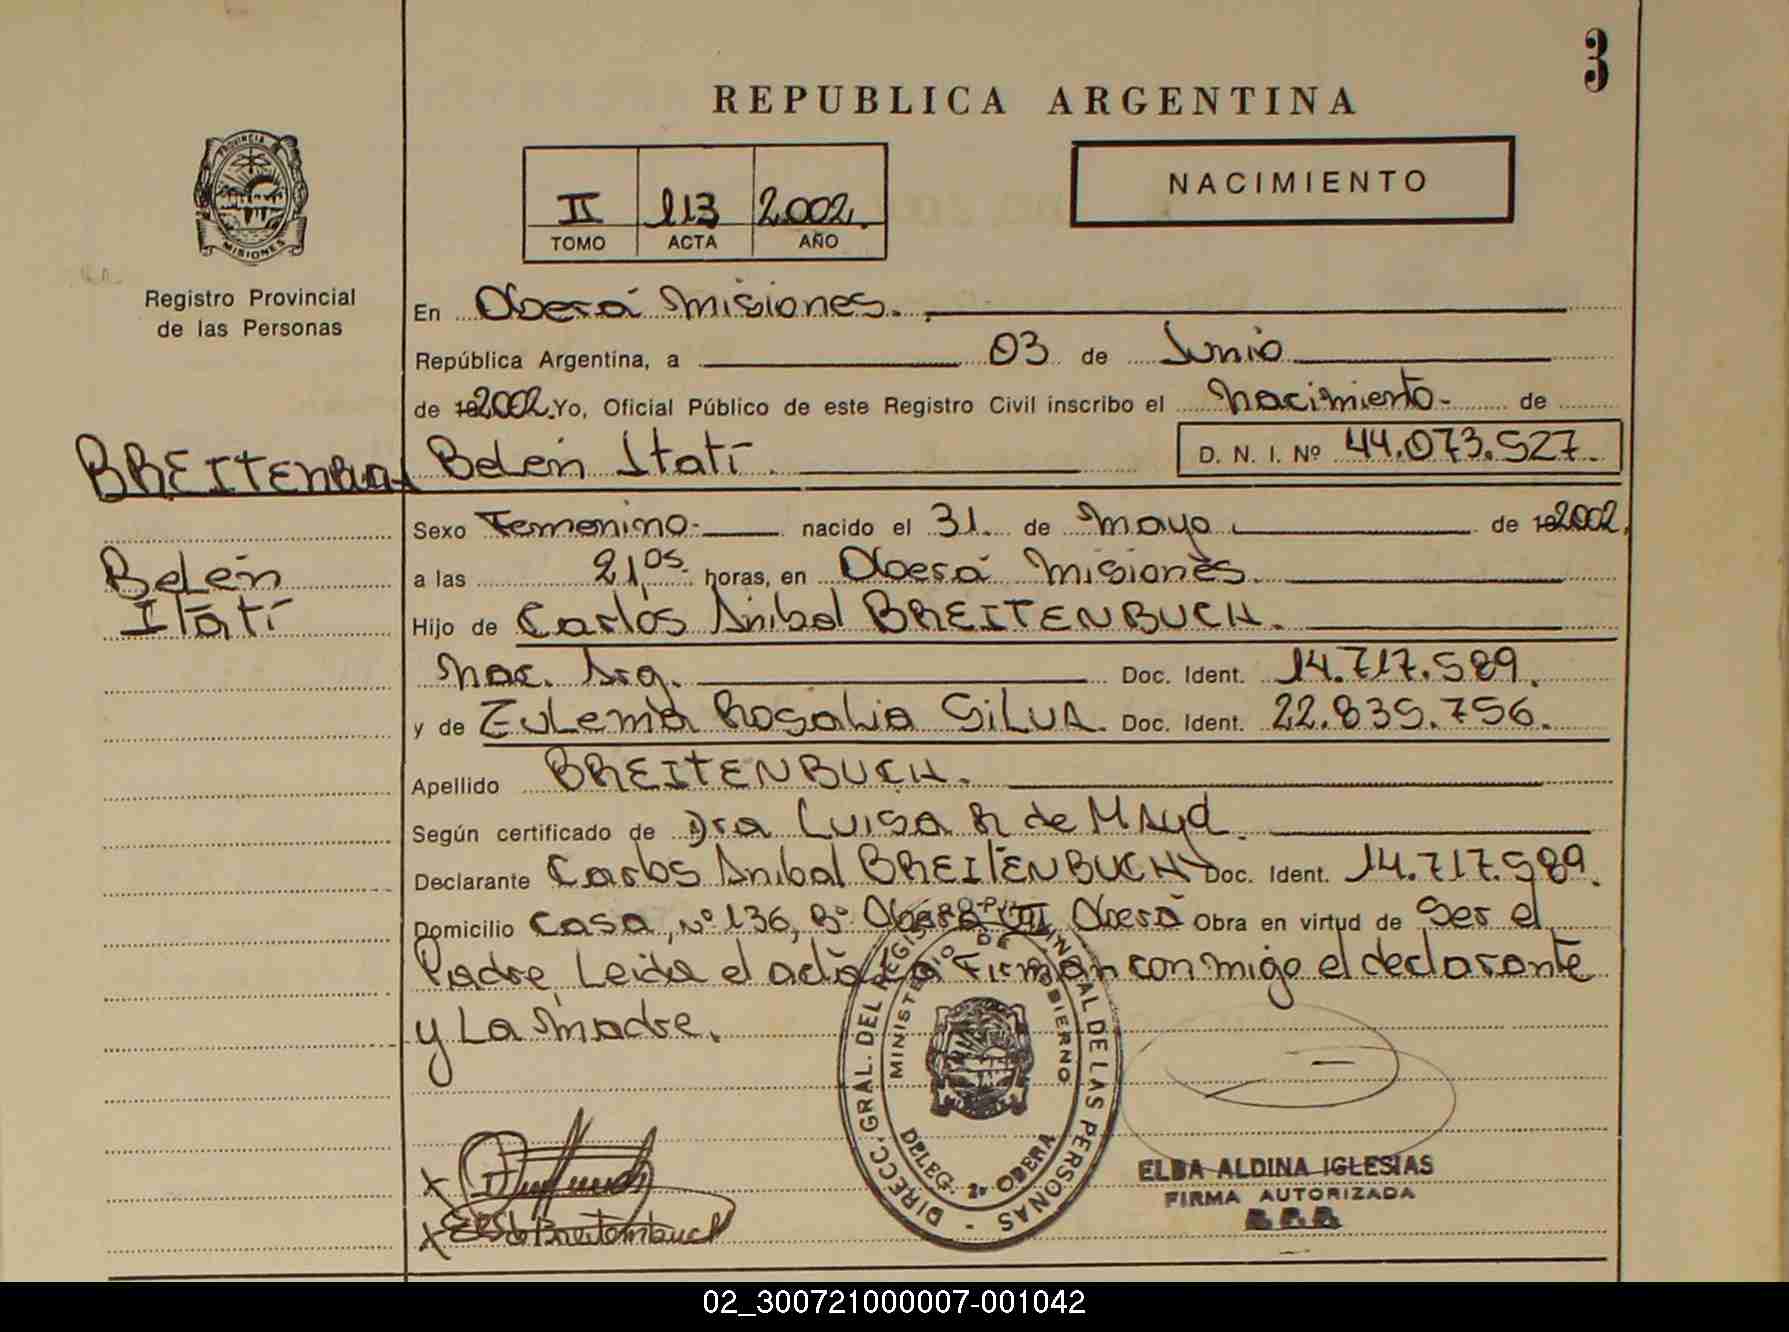 3
REPUBLICA ARGENTINA
PROVINCIA DE
MISIONES
Registro Provincial
de las Personas
II 113 2.002.
TOMO ACTA AÑO
NACIMIENTO
En Oberá Misiones.
República Argentina, a 03 de Junio
de 192002. Yo, Oficial Público de este Registro Civil inscribo el Nacimiento- de
BREITENBU Belén Itatí. D. N. I. Nº 44.073.527.
Sexo Femenino- nacido el 31. de Mayo de 192002.
Belén
Itatí
a las 21,05 horas, en Oberá Misiones.
Hijo de Carlos Anibal BREITENBUCH.
Nac. Arg. Doc. Ident. 14.717.589.
y de Eulema Rosalia SILVA. Doc. Ident. 22.835.756.
Apellido BREITENBUCH.
Según certificado de Dra Luisa R de MAyd.
Declarante Carlos Anibal BREITENBUCH Doc. Ident. 14.717.589.
Domicilio Casa, Nº 136, Bº Oberá III Oberá Obra en virtud de Ser el
Padre, Leida el acta Firman conmigo el declarante
y La Madre.
DIRECC. GRAL. DEL REGISTRO PROVINCIAL DE LAS PERSONAS -
MINISTERIO DE GOBIERNO
DELEG. 2ª OBERA
x
x ES de Breitembuch
ELBA ALDINA IGLESIAS
FIRMA AUTORIZADA
02_300721000007-001042